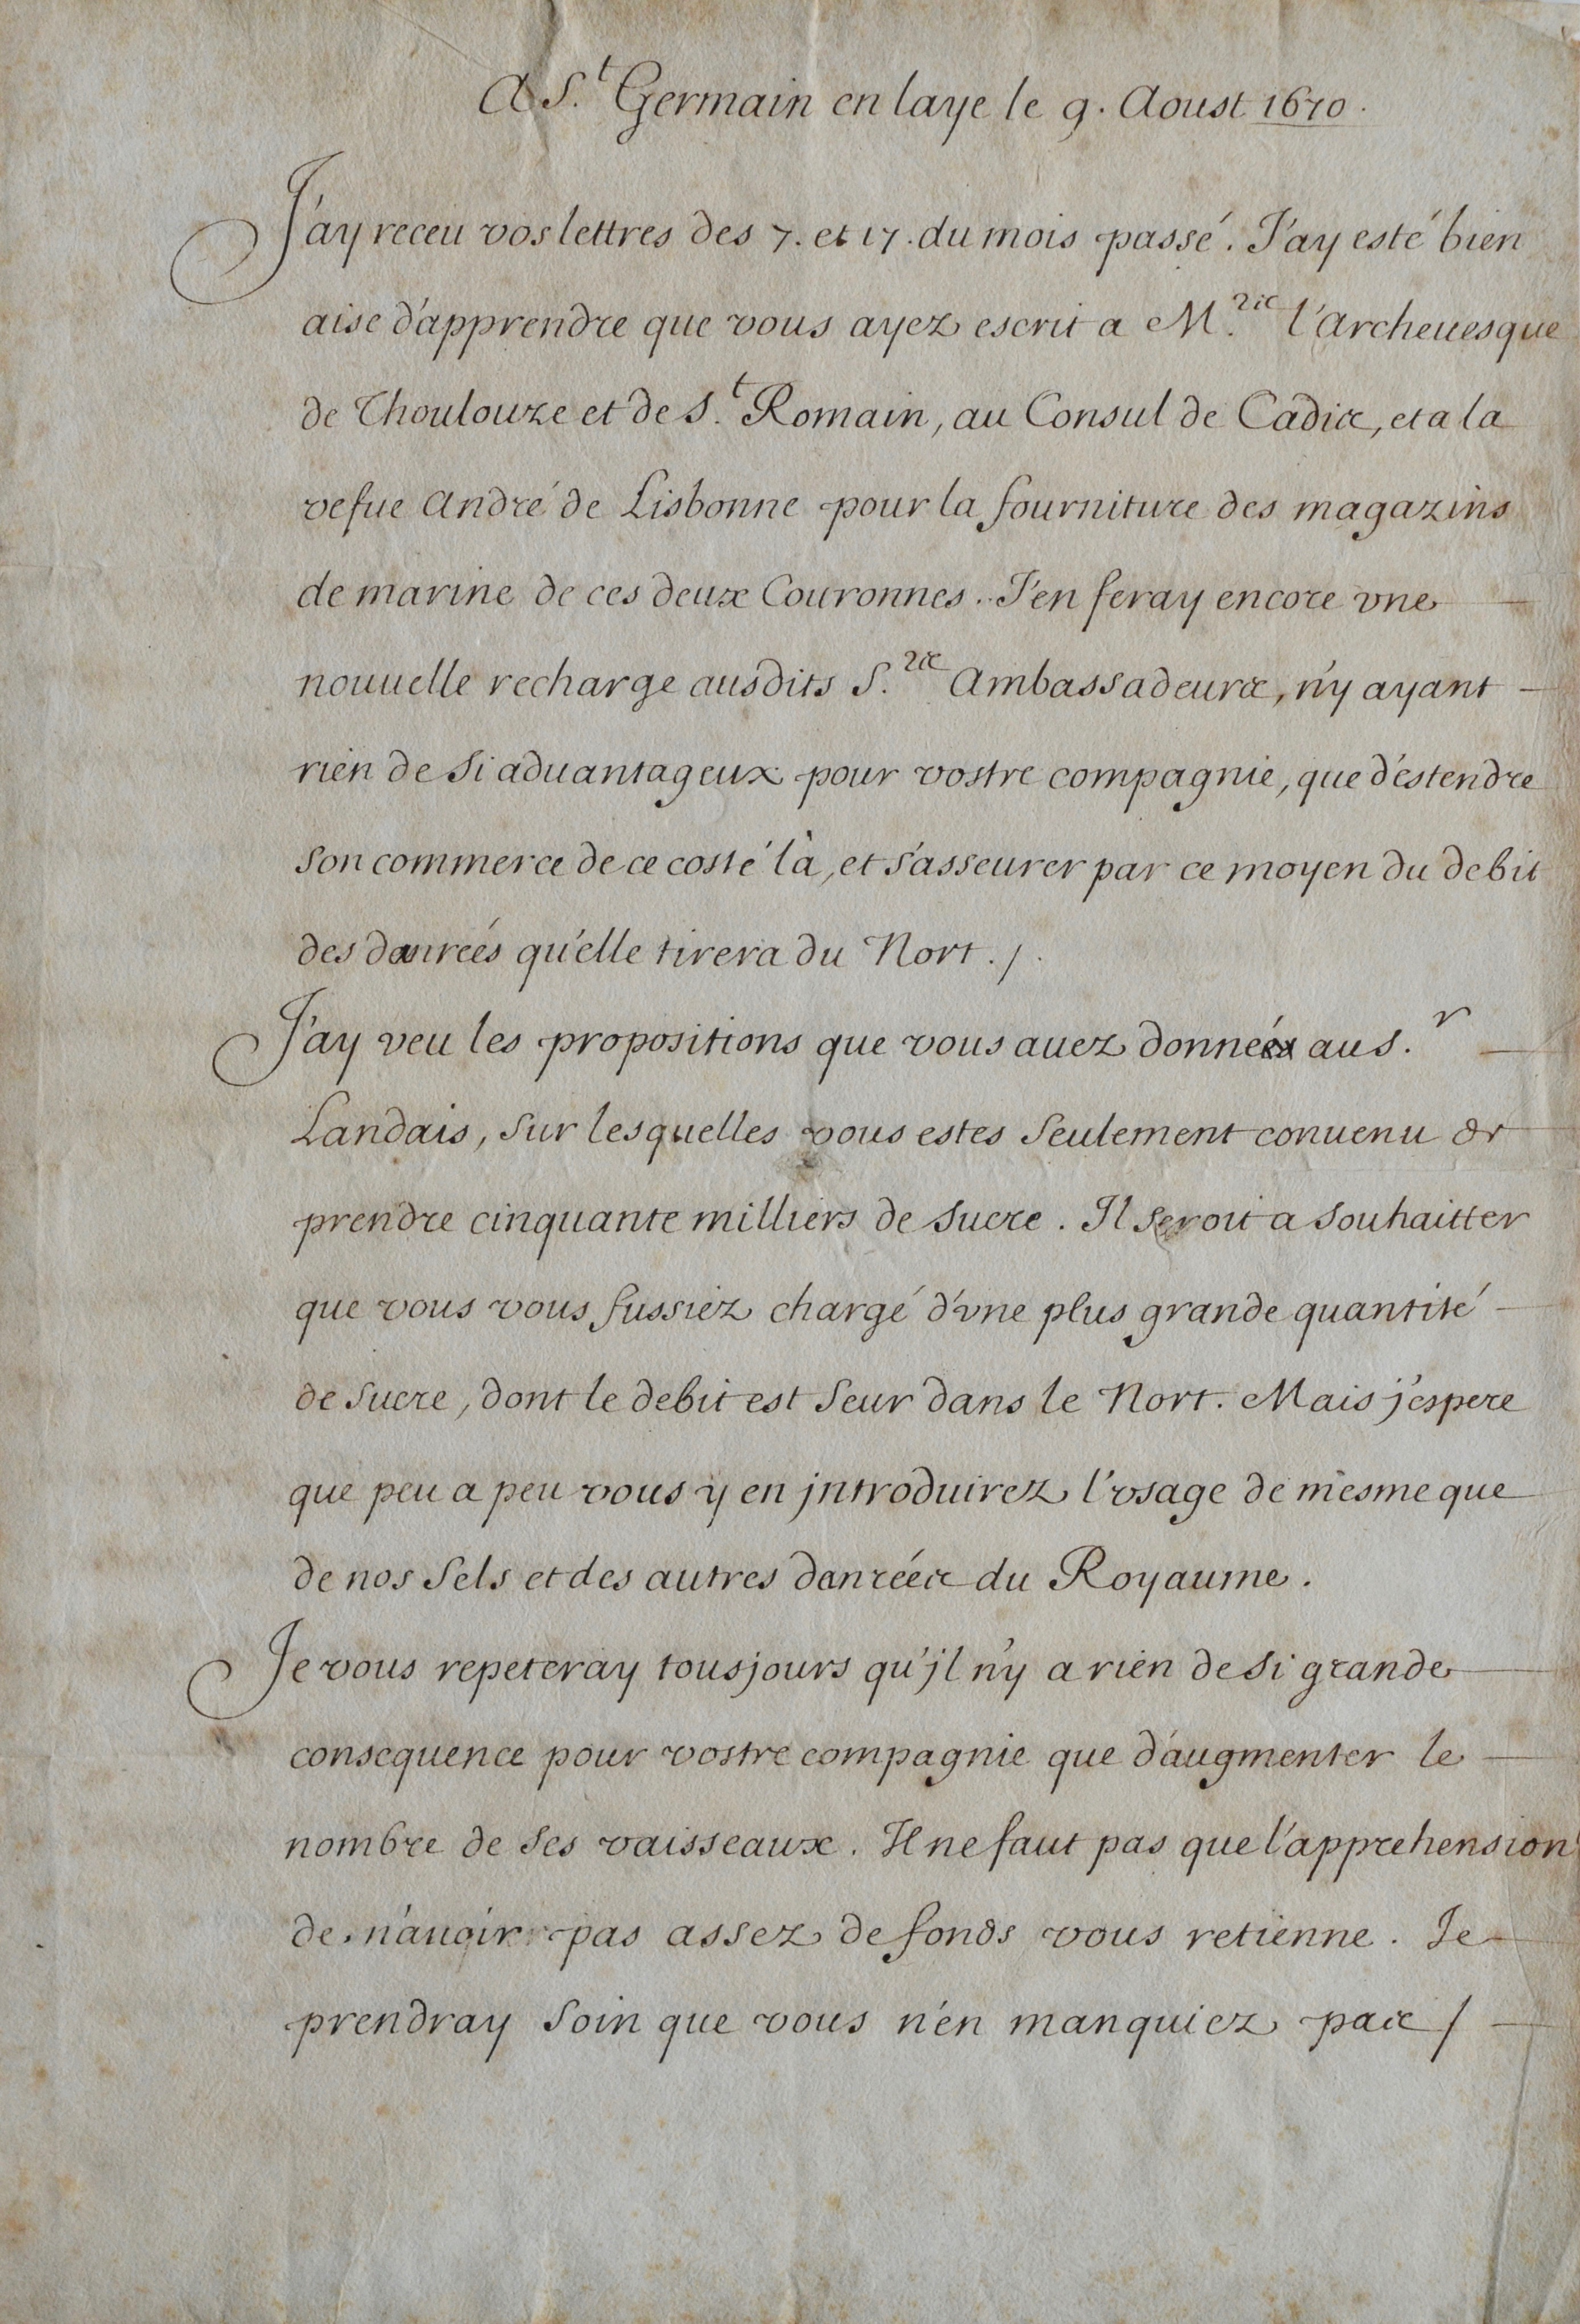 A S.t Germain en laye le 9. Aoust 1670.
J'ay receu vos lettres des 7. et 17. du mois passé. J'ay esté bien
aise d'apprendre que vous ayez escrit a M.rs l'Archeuesque
de Thoulouze et de S.t Romain, au Consul de Cadis, et a la
vefue André de Lisbonne pour la fourniture des magazins
de marine de ces deux Couronnes. J'en feray encore vne
nouuelle recharge ausdits S.rs Ambassadeurs, n'y ayant
rien de si aduantageux pour vostre compagnie, que d'estendre
son commerce de ce costé là, et s'asseurer par ce moyen du debit
des danreés qu'elle tirera du Nort. /.
J'ay veu les propositions que vous auez données au S.r
Landais, sur lesquelles vous estes seulement conuenu de
prendre cinquante milliers de sucre. Il seroit a souhaitter
que vous vous fussiez chargé d'vne plus grande quantité
de sucre, dont le debit est seur dans le Nort. Mais j'espere
que peu a peu vous y en jntroduirez l'vsage de mesme que
de nos sels et des autres danrées du Royaume.
Je vous repeteray tousjours qu'jl n'y a rien de si grande
consequence pour vostre compagnie que d'augmenter le
nombre de ses vaisseaux. Il ne faut pas que l'apprehension
de n'auoir pas assez de fonds vous retienne. Je
prendray soin que vous n'en manquiez pas /